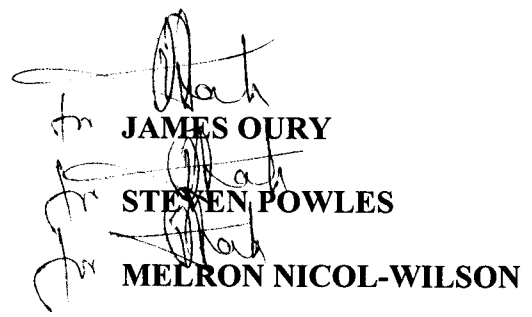 for
JAMES OURY
for
STEVEN POWLES
for
MELRON NICOL-WILSON